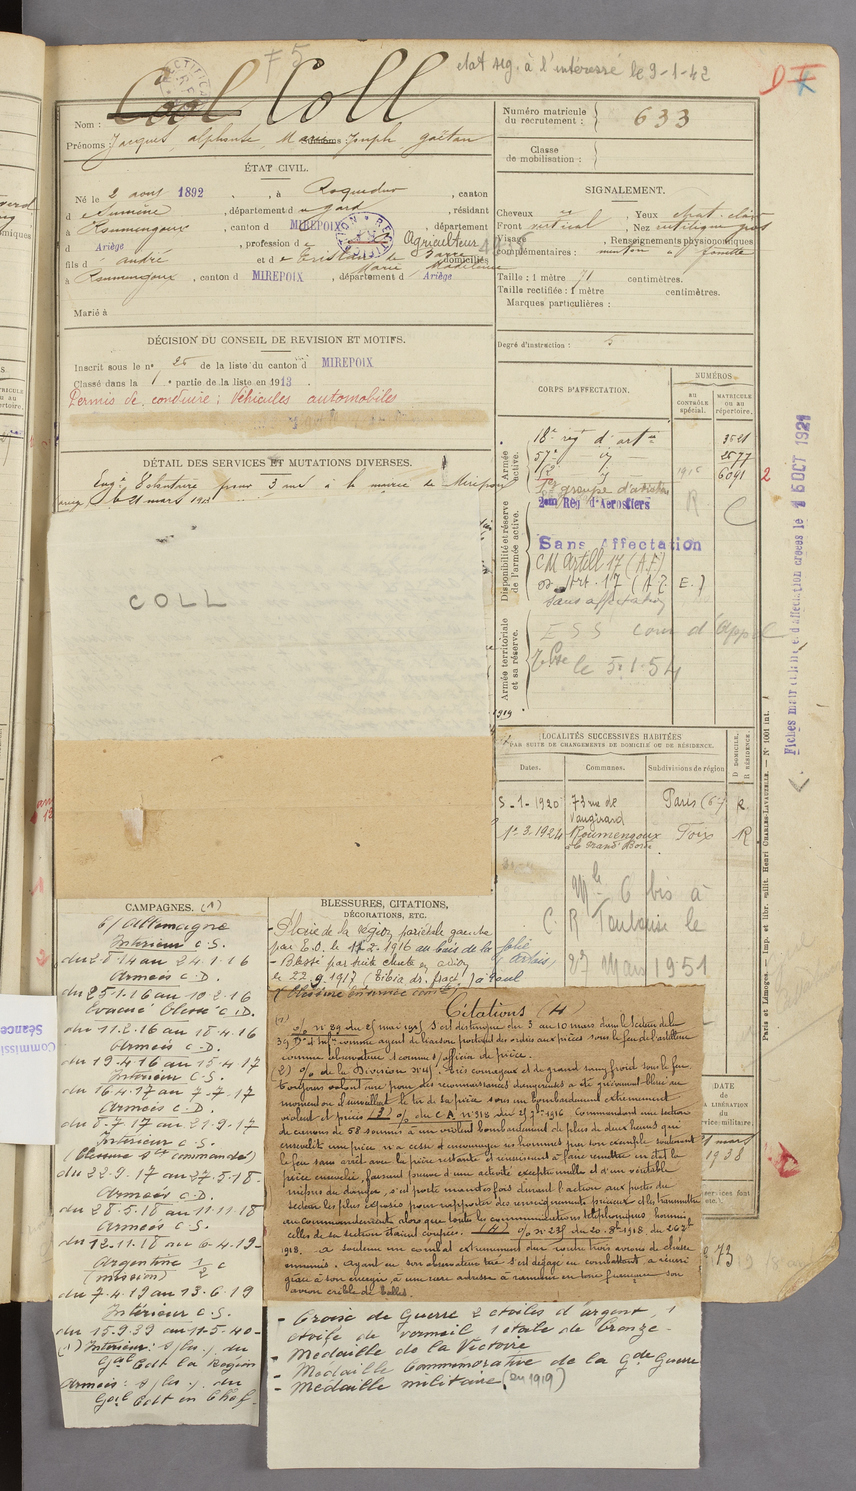 F 5
etat sig. à l'intéressé le 9-1-42
Nom : Cool Coll
Prénoms : Jacques, alphonse, Marie Joseph gaëtan
Numéro matricule
du recrutement : 633
Classe
de mobilisation :
ÉTAT CIVIL.
Né le 2 avril 1892, à Roquedur, canton
d Sumène, département d u gard, résidant
à Roumengoux, canton d MIREPOIX, département
d Ariège, profession d Agriculteur
fils d André et d e Tristan de Barre
Marie Madeleine domiciliés
à Roumengoux, canton d MIREPOIX, département d Ariège
Marié à
SIGNALEMENT.
Cheveux Yeux chat. clair
Front vertical, Nez rectiligne gros
Visage, Renseignements physionomiques
complémentaires : menton à fossette
Taille : 1 mètre 71 centimètres.
Taille rectifiée : 1 mètre centimètres.
Marques particulières :
Degré d'instruction : 5
DÉCISION DU CONSEIL DE REVISION ET MOTIFS.
Inscrit sous le n° 25 de la liste du canton d MIREPOIX
Classé dans la 1 partie de la liste en 1913.
Permis de conduire : Véhicules automobiles
DÉTAIL DES SERVICES ET MUTATIONS DIVERSES.
Engé Volontaire pour 3 ans à la mairie de Mirepoix
le 21 mars
COLL
CORPS D'AFFECTATION.
NUMÉROS
AU CONTRÔLE spécial.
MATRICULE OU AU répertoire.
Armée active.
18e rég d'artie 3521
57e 2577
6091
1er groupe d'aviation
Disponibilité et réserve de l'armée active.
2eme Rég d'Aérostiers
Sans Affectation
C M Artill 17 (A.F)
Art. 17
sans affectation
Armée territoriale et sa réserve.
E S S cour d'Appel
le 5.1.54
Fiches matricules et d'affectation créées le 15 OCT 1921
LOCALITÉS SUCCESSIVES HABITÉES
PAR SUITE DE CHANGEMENTS DE DOMICILE OU DE RÉSIDENCE.
Dates. Communes. Subdivisions de région
D DOMICILE. R RÉSIDENCE.
5-1-1920 73 rue de Vaugirard Paris (6e) R
1e.3.1924 Roumengoux Foix R
Mle 6 bis à
C. R Toulouse le
27 Mars 1951
Paris et Limoges. — Imp. et libr. milit. Henri CHARLES-LAVAUZELLE. — N° 1001 int.
DATE
de
LA LIBÉRATION
du
service militaire.
mars
1938
CAMPAGNES. (1)
C/ Allemagne
Intérieur C.S.
du 2.8.14 au 24.1.16
Armées C.D.
du 25.1.16 au 10.2.16
Evacué blessé C.D.
du 11.2.16 au 18.4.16
Armées C.D.
du 19.4.16 au 15.4.17
Intérieur C.S.
du 16.4.17 au 7.7.17
Armées C.D.
du 8.7.17 au 21.9.17
Intérieur C.S.
(blessure s/ce commandé)
du 22.9.17 au 27.5.18-
Armées C.D.
du 28.5.18 au 11.11.18
Armées C.S.
du 12.11.18 au 6.4.19-
Argentine 1/2 C
(mission)
du 7.4.19 au 13.6.19
Intérieur C.S.
du 15.9.39 au 11.5.40-
(1) Intérieur : du
Gal Cdt la Région
Armées : du
Gal Cdt en Chef.
BLESSURES, CITATIONS,
DÉCORATIONS, ETC.
- Plaie de la région pariétale gauche
par E.O. le 11.2.1916 au bois de la folie
(Artois)
- Blessé par suite chute en avion
le 22.9.1917 (tibia dr. fract.)
Citations (4)
(1) o/o n° 89 du 25 mai 1915 S'est distingué du 3 au 10 mars dans le secteur de la
comme agent de liaison portant des ordres aux pièces sous le feu de l'artillerie
comme observateur et comme s/officier de pièce.
(2) o/o de la Division Très courageux et de grand sang froid sous le feu.
Toujours volontaire pour des reconnaissances dangereuses a été grièvement blessé au
moment où il surveillait le tir de sa pièce sous un bombardement extrêmement
violent et précis (3) o/o du C.A. n° 318 du 1916 Commandant une section
de canons de 58 soumis à un violent bombardement de plus de deux heures qui
ensevelit une pièce n'a cessé d'encourager ses hommes par son exemple soutenant
le feu sans arrêt avec la pièce restante et réussissant à faire remettre en état la
pièce ensevelie, faisant preuve d'une activité exceptionnelle et d'un véritable
mépris du danger, s'est porté maintes fois durant l'action aux postes du
secteur les plus exposés pour rapporter des renseignements précieux et les transmettre
au commandement alors que toutes les communications téléphoniques hormis
celles de sa section étaient coupées. (4) o/o n° 235 du 20.8bre 1918 du
1918. A soutenu un combat extrêmement dur contre trois avions de chasse
ennemis. Ayant eu son observateur tué s'est dégagé en combattant, a réussi
grâce à son énergie, à une rare adresse à ramener en terre française son
avion criblé de balles.
- Croix de Guerre 2 étoiles d'argent, 1
étoile de vermeil 1 étoile de bronze.
- Médaille de la Victoire
- Médaille Commémorative de la Gde Guerre
- Médaille militaire (en 1919)
Commissi
Séance